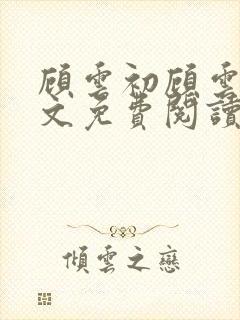 顾雲初顾雲
文免費閱讀
傾雲之戀